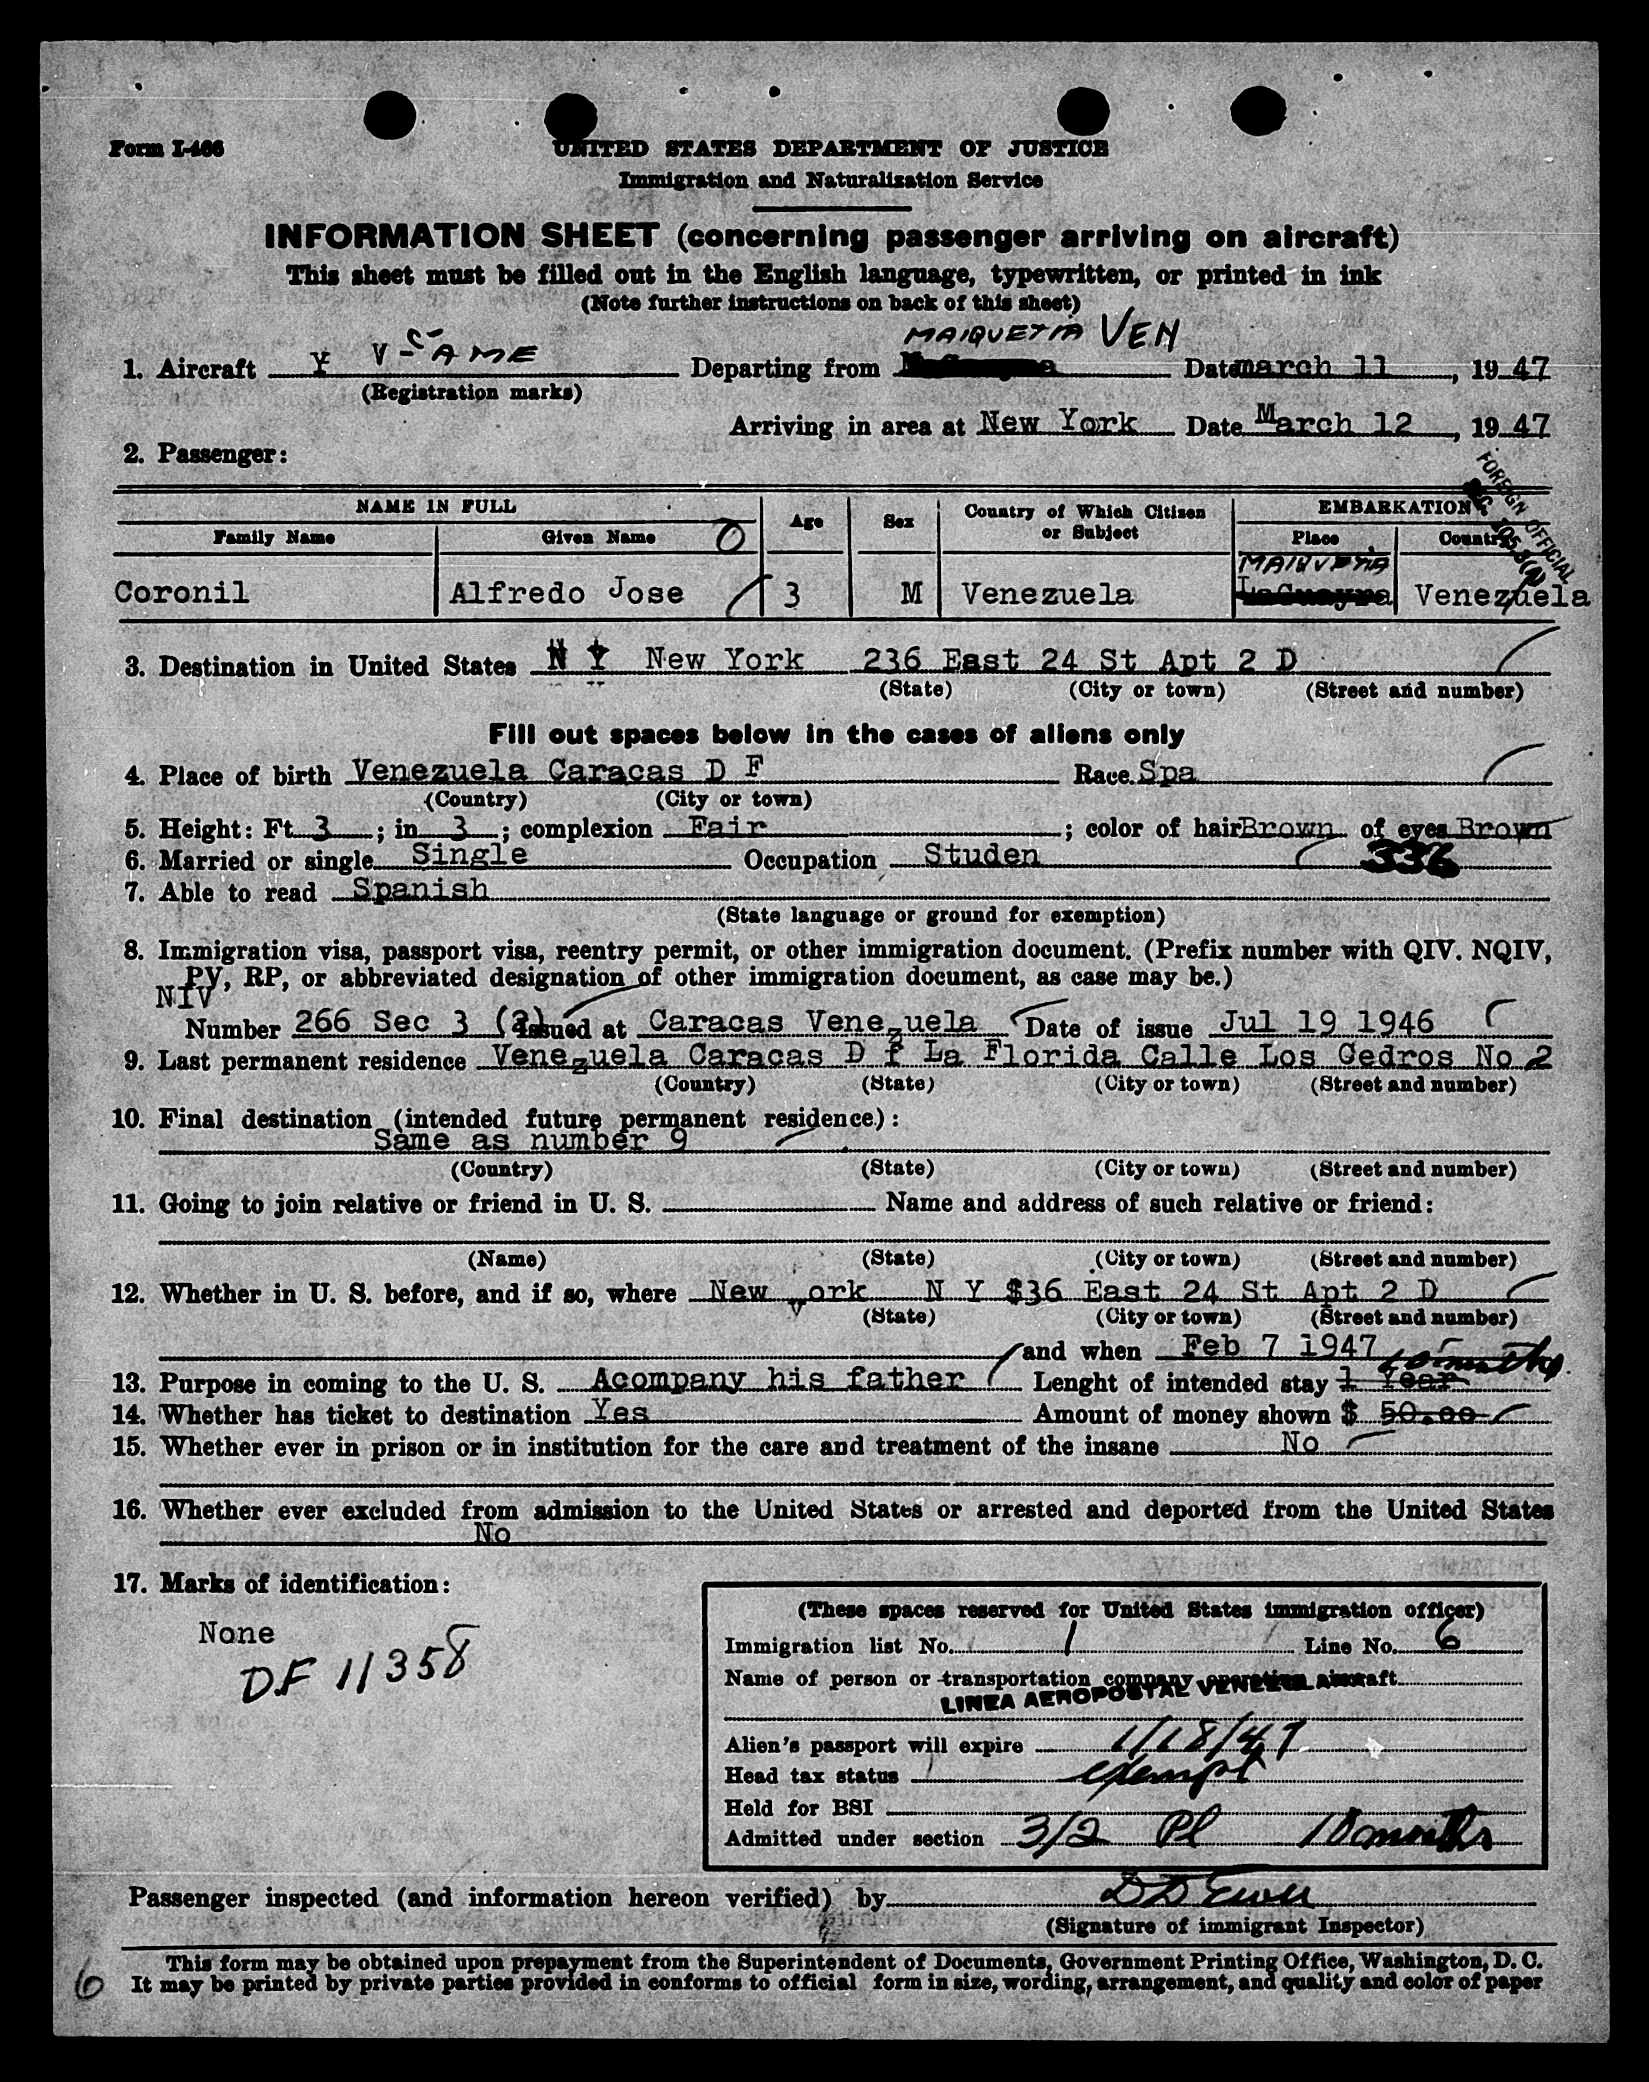 Form I-466
UNITED STATES DEPARTMENT OF JUSTICE
Immigration and Naturalization Service
INFORMATION SHEET (concerning passenger arriving on aircraft)
This sheet must be filled out in the English language, typewritten, or printed in ink
(Note further instructions on back of this sheet)
MAIQUETIA VEN
1. Aircraft Y V - C-AME Departing from Date march 11, 1947
(Registration marks)
Arriving in area at New York Date March 12, 1947
2. Passenger:
FOREIGN OFFICIAL
NAME IN FULL Age Sex Country of Which Citizen or Subject EMBARKATION
Family Name Given Name Place Country
MAIQUETIA
Coronil Alfredo Jose 3 M Venezuela LaGuayra Venezuela
3. Destination in United States N Y New York 236 East 24 St Apt 2 D
(State) (City or town) (Street and number)
Fill out spaces below in the cases of aliens only
4. Place of birth Venezuela Caracas D F Race Spa
(Country) (City or town)
5. Height: Ft 3; in 3; complexion Fair; color of hair Brown of eyes Brown
6. Married or single Single Occupation Studen 336
7. Able to read Spanish
(State language or ground for exemption)
8. Immigration visa, passport visa, reentry permit, or other immigration document. (Prefix number with QIV. NQIV,
PV, RP, or abbreviated designation of other immigration document, as case may be.)
NIV
Number 266 Sec 3 (2) Issued at Caracas Venezuela Date of issue Jul 19 1946
9. Last permanent residence Venezuela Caracas D f La Florida Calle Los Cedros No 2
(Country) (State) (City or town) (Street and number)
10. Final destination (intended future permanent residence):
Same as number 9
(Country) (State) (City or town) (Street and number)
11. Going to join relative or friend in U. S. Name and address of such relative or friend:
(Name) (State) (City or town) (Street and number)
12. Whether in U. S. before, and if so, where New york N Y $36 East 24 St Apt 2 D
(State) (City or town) (Street and number)
and when Feb 7 1947
13. Purpose in coming to the U. S. Acompany his father Lenght of intended stay 1 Year 10 months
14. Whether has ticket to destination Yes Amount of money shown $ 50.00
15. Whether ever in prison or in institution for the care and treatment of the insane No
16. Whether ever excluded from admission to the United States or arrested and deported from the United States
No
17. Marks of identification:
None
DF 11358
(These spaces reserved for United States immigration officer)
Immigration list No. 1 Line No. 6
Name of person or transportation company operating aircraft
LINEA AEROPOSTAL
Alien's passport will expire 1/18/47
Head tax status exempt
Held for BSI
Admitted under section 3/2 Pl 10 months
Passenger inspected (and information hereon verified) by
(Signature of immigrant Inspector)
This form may be obtained upon prepayment from the Superintendent of Documents, Government Printing Office, Washington, D. C.
6 It may be printed by private parties provided in conforms to official form in size, wording, arrangement, and quality and color of paper